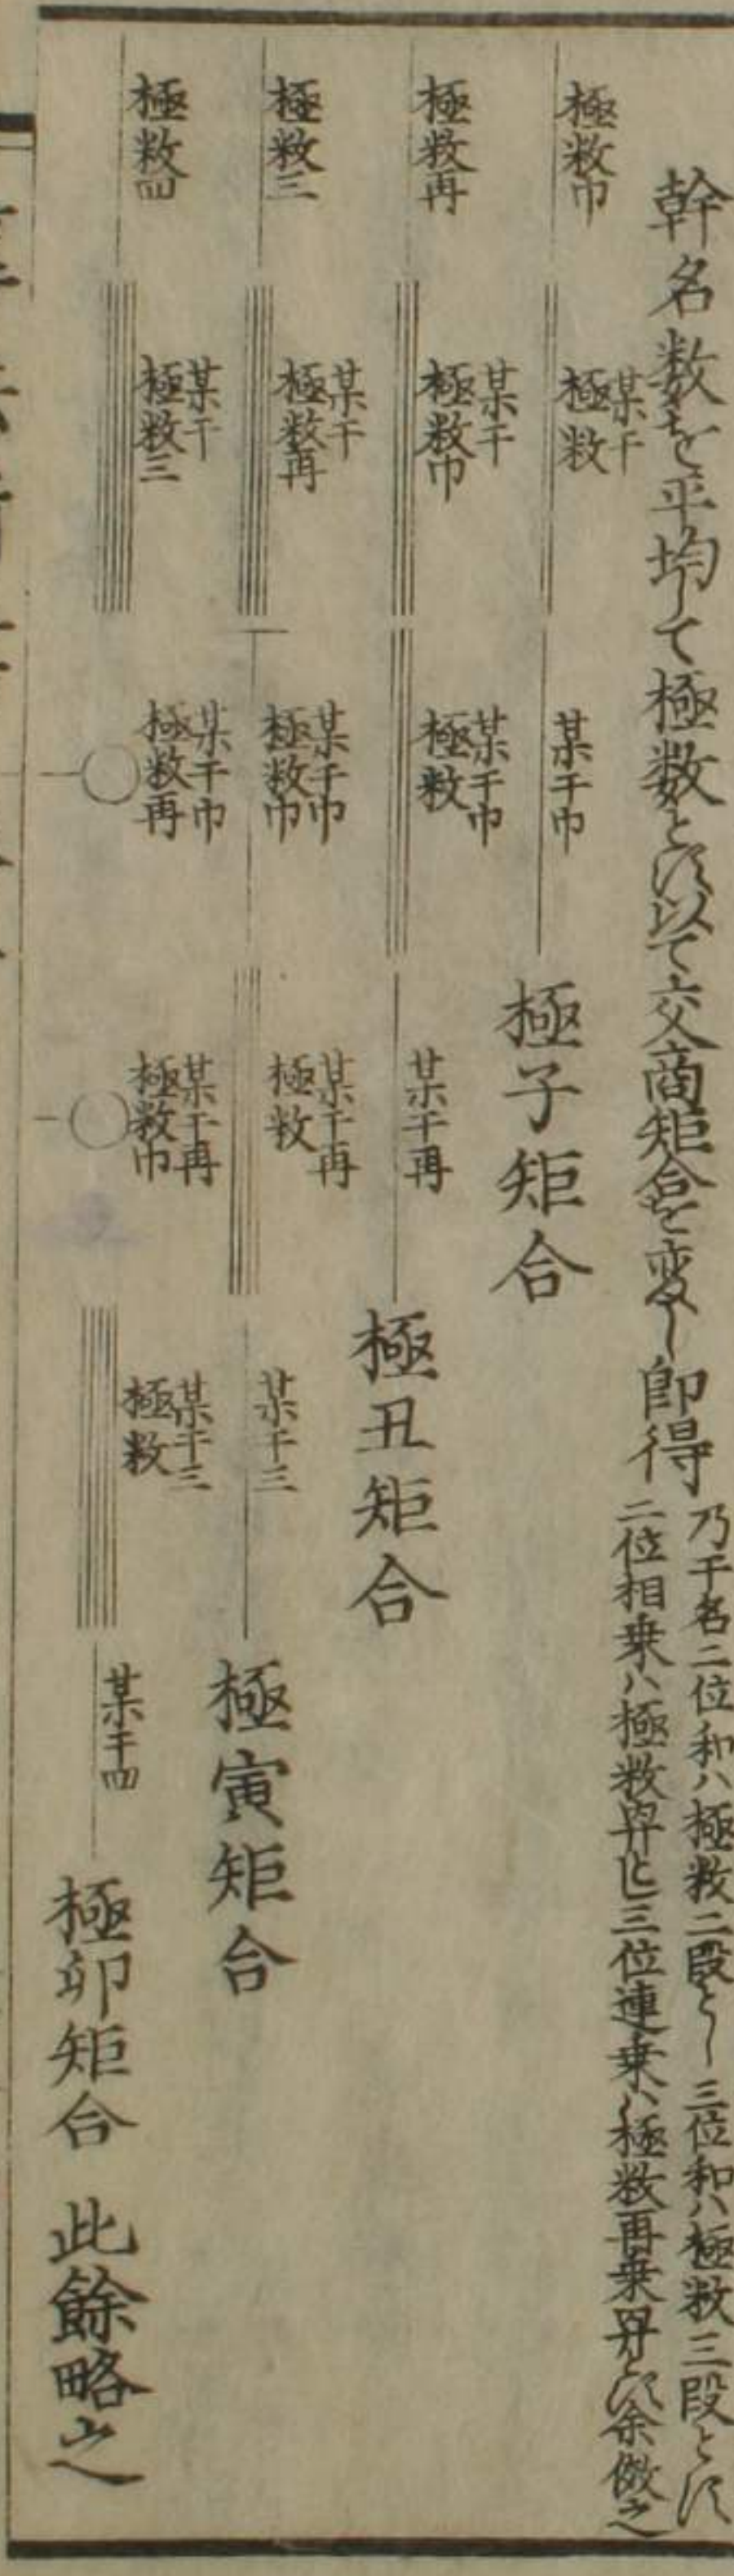 幹名数を平均して極数とし以て交商矩合を変し即得
乃干名二位和ハ極数二段とし三位和ハ極数三段とし
二位相乗ハ極数巾とし三位連乗ハ極数再乗巾とし余傚之
極数巾 某干極数 某干巾 極子矩合
極数再 某干極数巾 某干巾極数 某干再 極丑矩合
極数三 某干極数再 某干巾極数巾 某干再極数 某干三 極寅矩合
極数四 某干極数三 某干巾極数再 某干再極数巾 某干三極数 某干四 極卯矩合 此餘略之